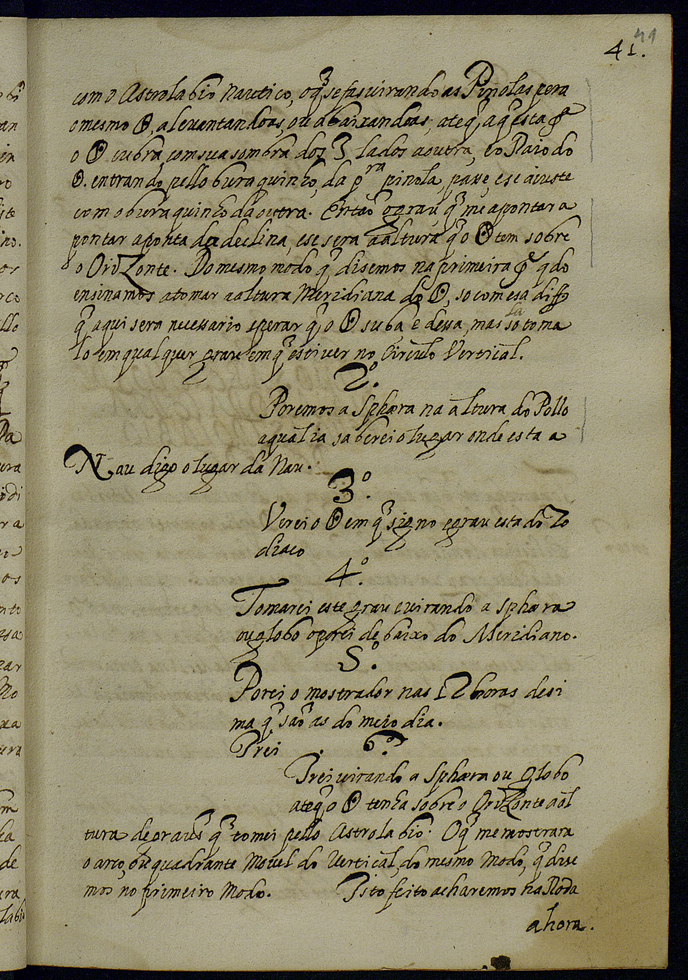 41.
como Astrolabio Nautico, o q̃ se fas uirando as Pinolas pera
o mesmo ☉, aleuantandoas, ou abaixandoas, ate q̃ a q̃ esta pª
o ☉ cubra com sua sombra dos 3 lados a outra, e o Raio do
☉. entrando pello buraquinho, da prª pinola paxe, e se aiuste
com o buraquinho da outra. Então o grau q̃ me apontar a
pontar a ponta da declina, ese sera a altura q̃ o ☉ tem sobre
o OriZonte. Do mesmo modo q̃ disemos na primeira pª qdo
ensinamos a tomar a altura Meridiana do ☉, so com esa diffª
q̃ aqui sera necessario sperar q̃ o ☉ suba e dessa, mas so toma
lo em qualquer grau em q̃ estiuer no Circulo Vertical.
2º.
Poremos a Sphæra na altura do Pollo
a qual ia saberei o lugar onde esta a
Nau digo o lugar da Nau.
3º.
Verei o ☉ em q̃ signo e grau esta do Zo
diaco
4º.
Tomarei este grau e uirando a sphæra
ou globo o porei de baixo do Meridiano.
5º.
Porei o mostrador nas 12 horas desi
ma q̃ são as do meio dia.
Irei . 6º.
Irei uirando a Sphæra ou Globo
ate q̃ o ☉ tenha sobre o OriZonte a al
tura de graus q̃ tomei pello Astrolabio. O q̃ me mostrara
o arco, ou quadrante Mouel do Vertical, do mesmo Modo, q̃ dise
mos no primeiro Modo. Isto feito acharemos na Roda
a hora.